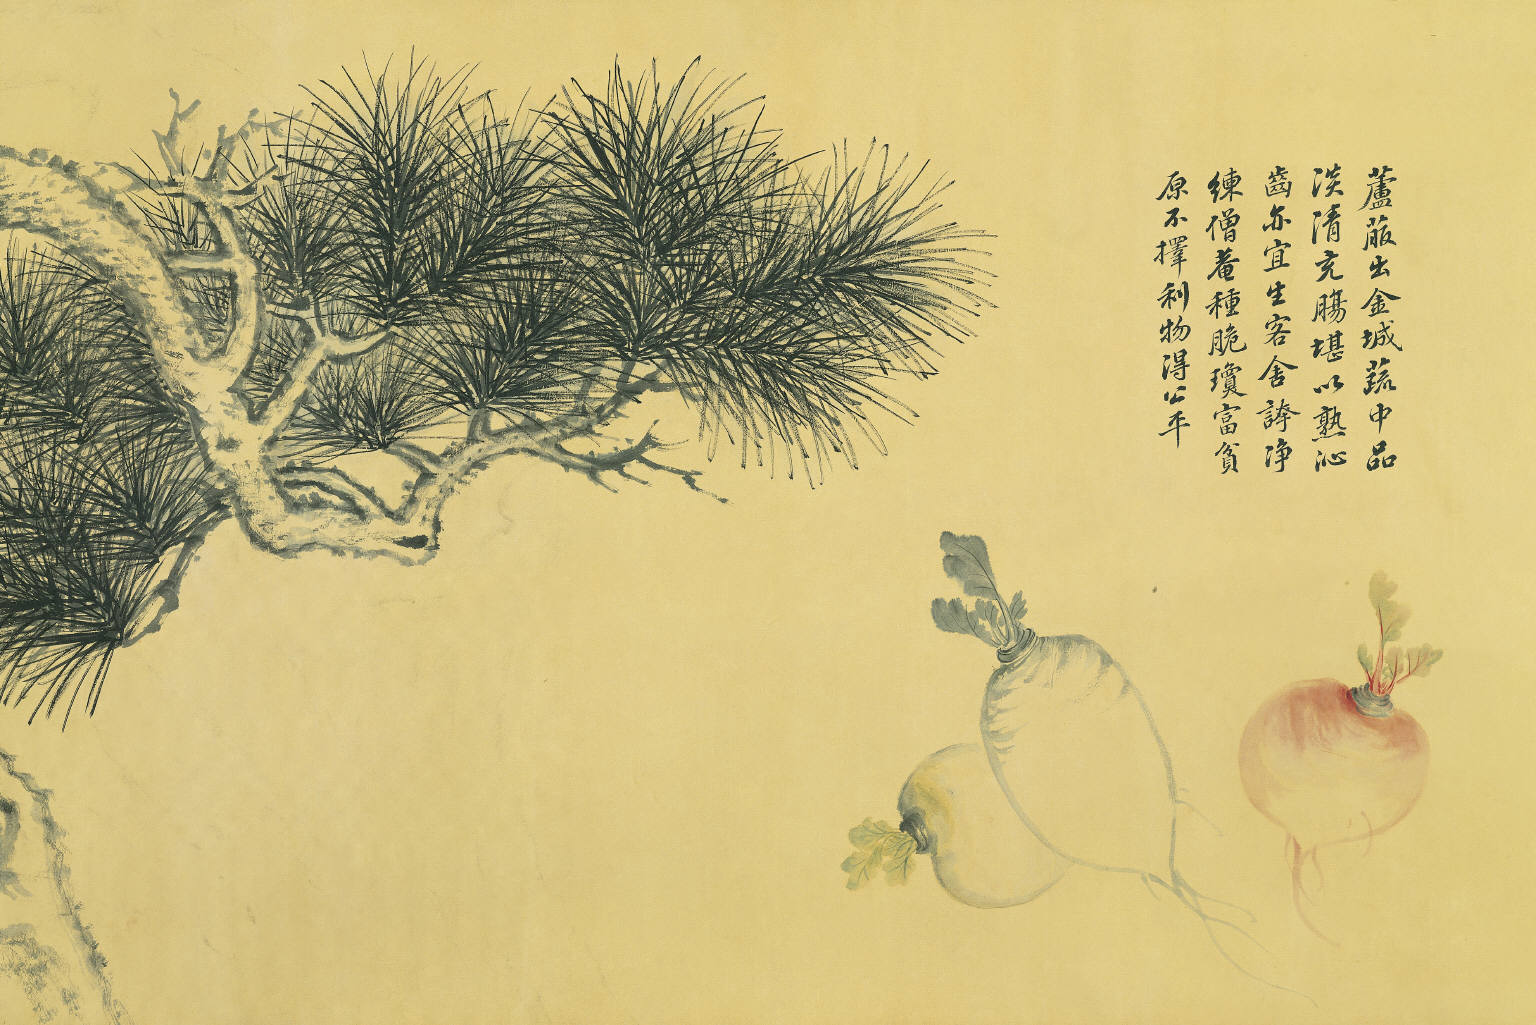 蘆菔出金城蔬中品
淡清充腸堪以熟沁
齒亦宜生客舍誇淨
練僧菴種脆瓊富貧
原不擇利物得公平